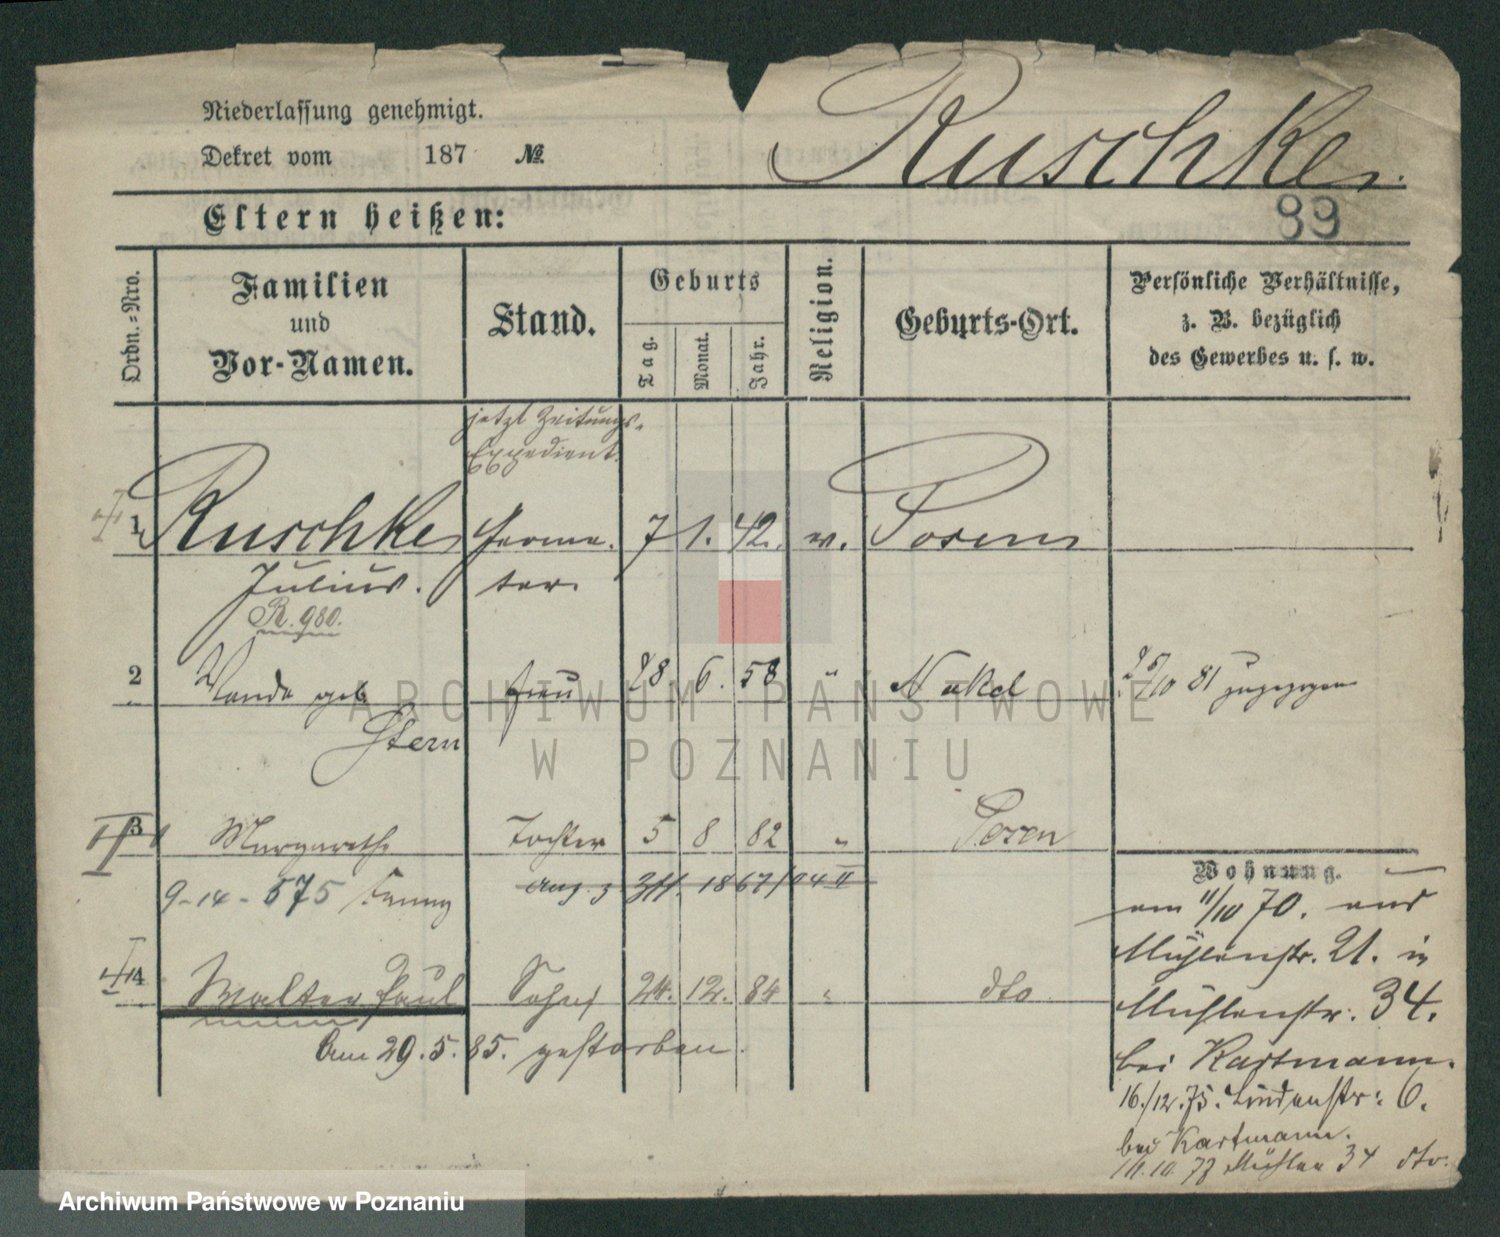 Niederlassung genehmigt.
Dekret vom 187 №
Ruschke.
89
Eltern heißen:
Ordn.-Nro.
Familien
und
Vor-Namen.
Stand.
Geburts
Tag.
Monat.
Jahr.
Religion.
Geburts-Ort.
Persönliche Verhältnisse,
z. B. bezüglich
des Gewerbes u. s. w.
jetzt Zeitungs-
Expedient.
1 Ruschke 7 1. 42. Posen
Julius.
R. 980.
2 Wanda geb. Frau 28 6. 58 " Nakel 25/10 81 zugezogen
Stern
3 Margarethe Tochter 5 8 82 " Posen
9-14-575
4 Walter Paul Sohn 24. 12. 84 " dto
Am 29. 5. 85. gestorben.
Wohnung.
am 11/10 70. aus
Mühlenstr. 21. in
Mühlenstr. 34.
bei Kartmann.
16./12. 75. Lindenstr: 6.
bei Kartmann.
Mühlen 34 dto.
ARCHIWUM PAŃSTWOWE
W POZNANIU
Archiwum Państwowe w Poznaniu